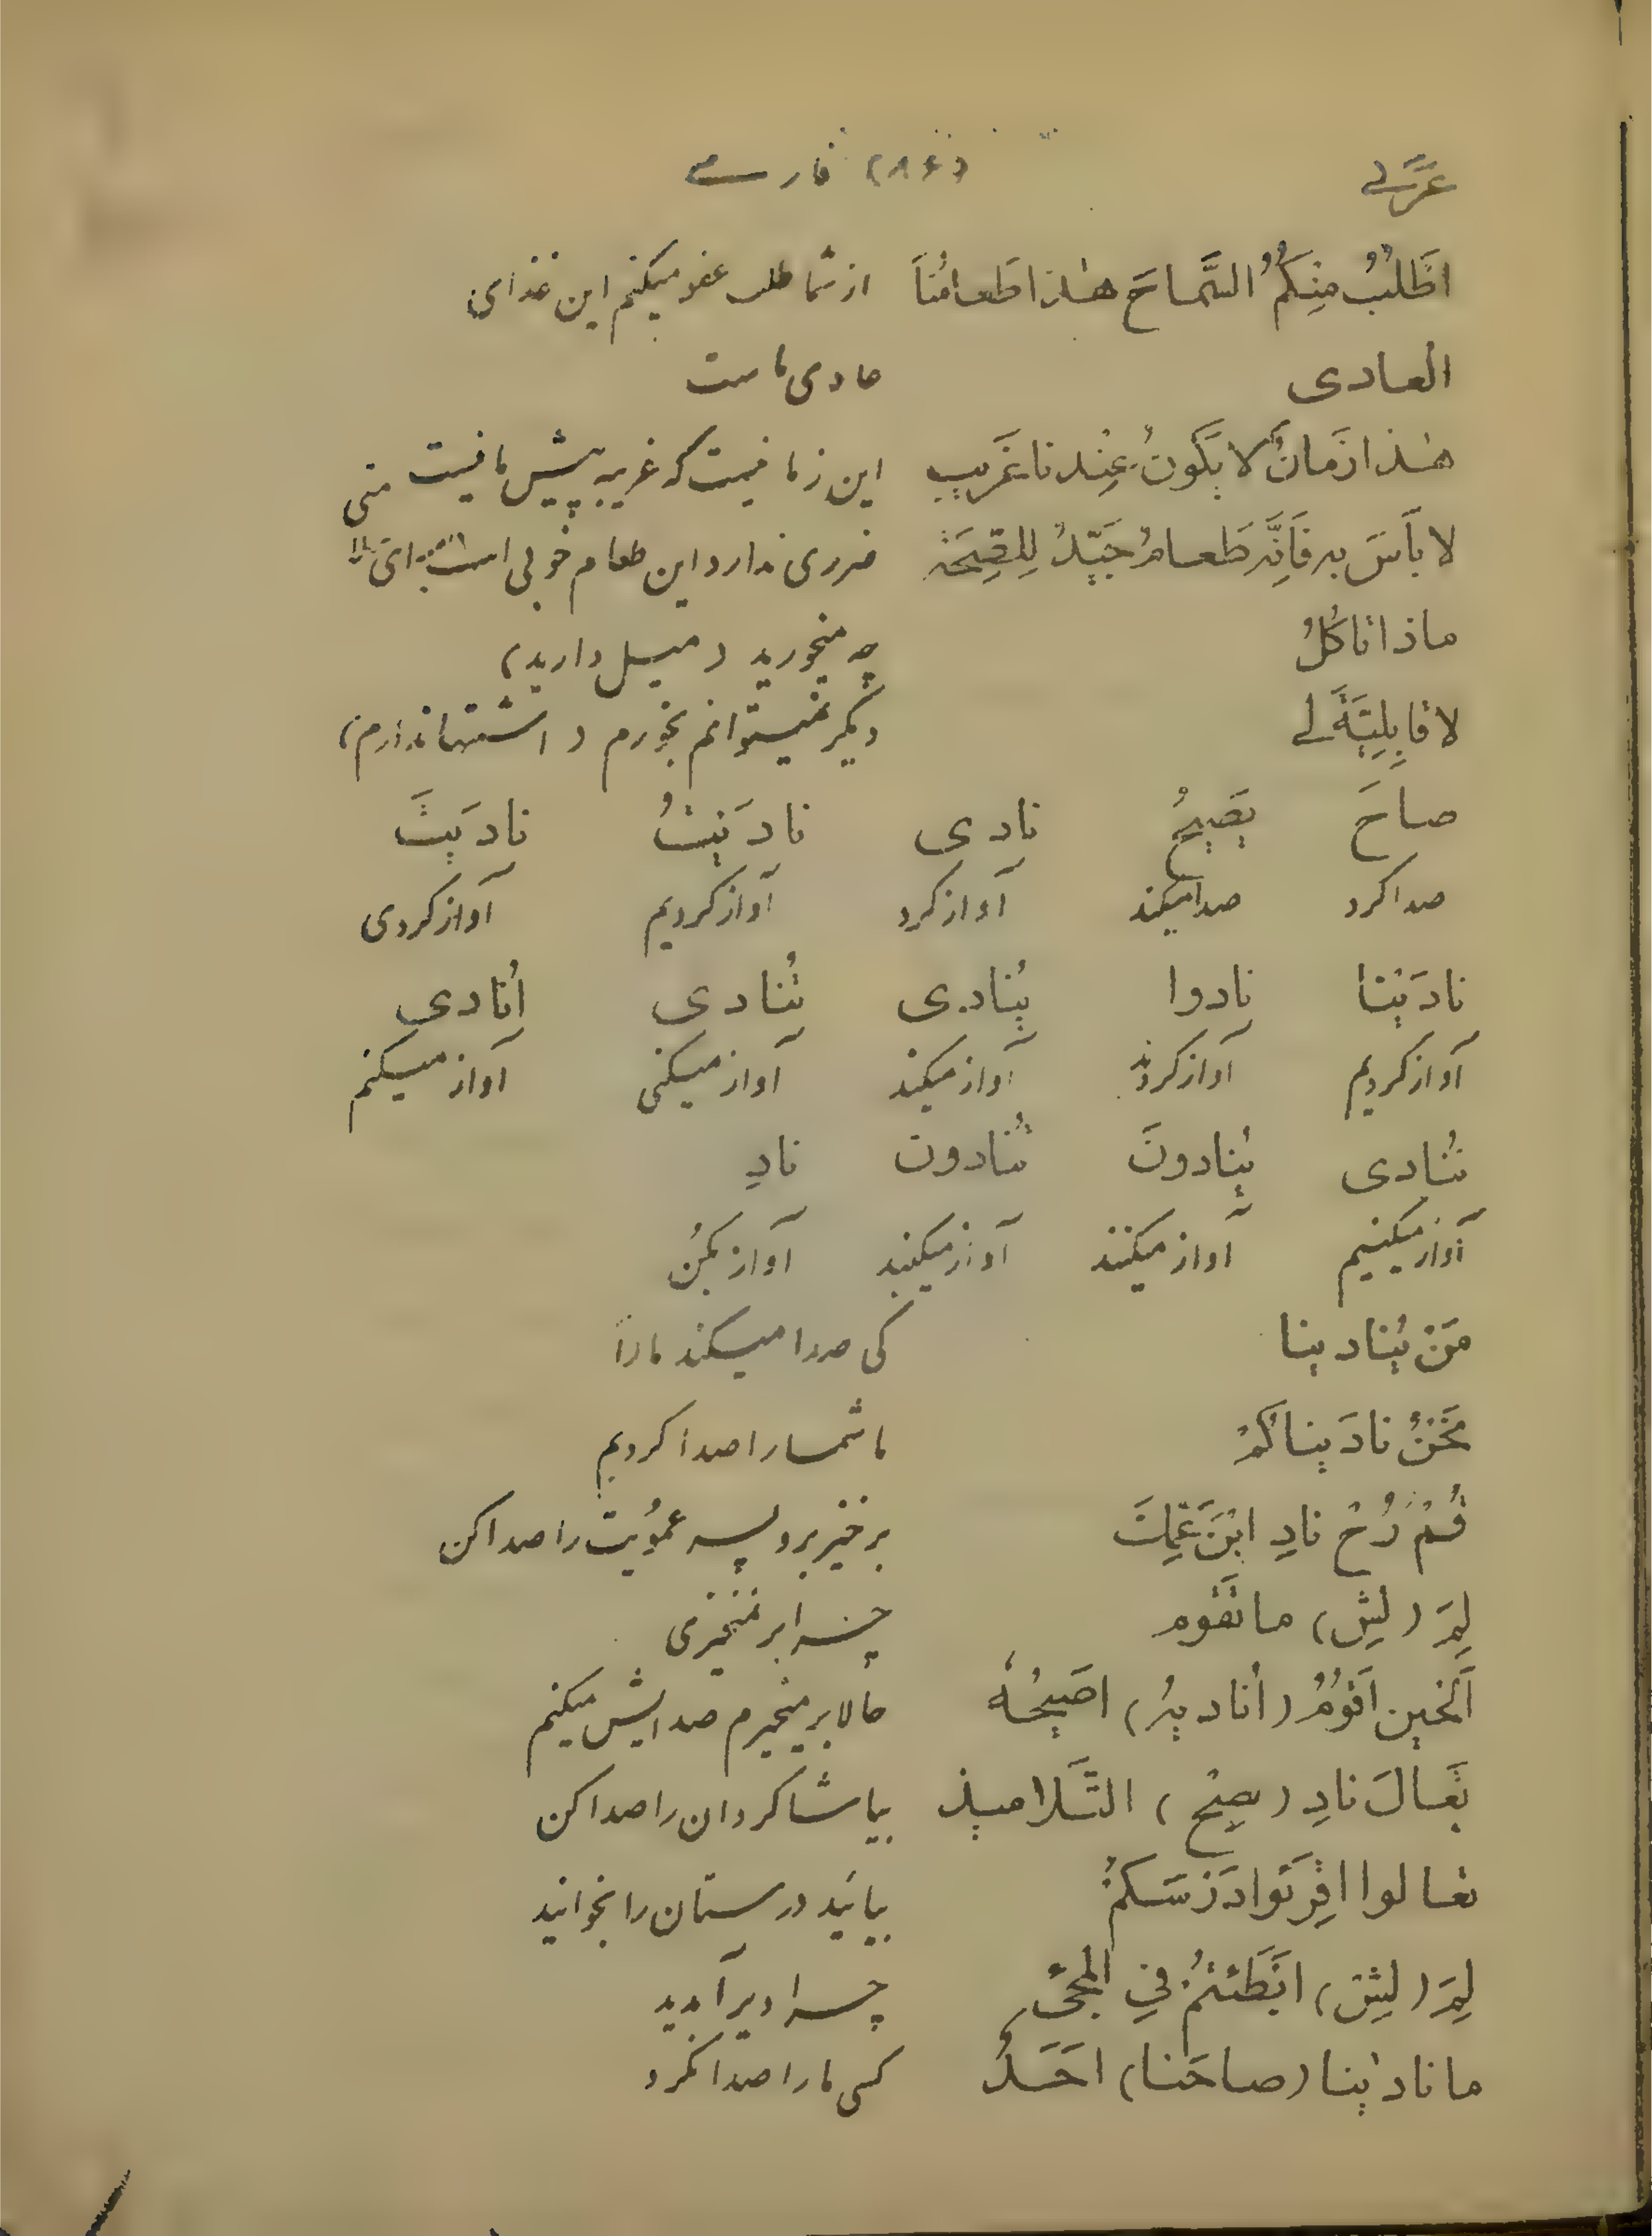 عربی (۸۶) فارسی
اَطْلُبُ مِنْکُمُ السَّماحَ هٰذا طَعامُنَا از شما طلب عفو میکنم این غذای
العادی عادی ماست
هٰذا زَمانٌ لا یَکُونُ عِنْدنا غَریب این زمانیست که غریبه پیش ما نیست
لا بَأسَ به فَاِنَّه طَعامٌ جَیِّدٌ لِلصِّحَة ضرری ندارد این طعام خوبی است برای
ماذا تاکُلُ چه میخورید (میل دارید)
لا قابِلِیَّةَ لی دیگر نمیتوانم بخورم (اشتها ندارم)
صاحَ یَصیحُ نادی نادَیْتُ نادَیتَ
صدا کرد صدا میکند آواز کرد آواز کردیم آواز کردی
نادَیْنا نادوا یُنادی تُنادی اُنادی
آواز کردیم آواز کردند آواز میکند آواز میکنی آواز میکنم
نُنادی یُنادونَ تُنادون نادِ
آواز میکنیم آواز میکنند آواز میکنید آواز بکن
مَنْ یُنادینا کی صدا میکند ما را
نَحْنُ نادَیناکُمْ ما شما را صدا کردیم
قُمْ رُحْ نادِ ابْنَ عَمِّكَ برخیز برو پسر عمویت را صدا کن
لِمَ (لیش) ما تَقوم چرا بر نمیخیزی
اَلحین اَقُومُ (اُنادیهُ) اصَیحُهُ حالا بر میخیزم صدایش میکنم
تَعالَ نادِ (یصیحْ) التَّلامیذ بیا شاگردان را صدا کن
تعالوا اقِرَئوا دَرْسَکمْ بیائید درستان را بخوانید
لِمَ (لیش) ابَطَئتُمْ فی المجیء چرا دیر آمدید
ما نادیٰنا (صاحَنا) احَدٌ کسی ما را صدا نکرد